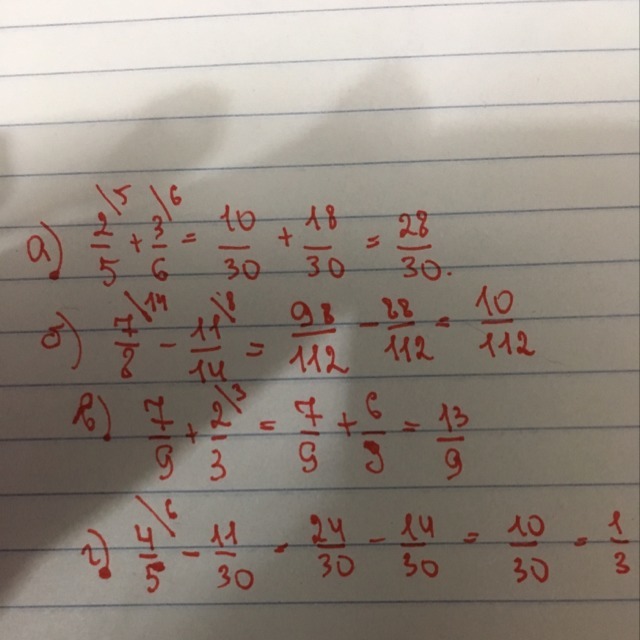 а) 2/5 \5 + 3/6 \6 = 10/30 + 18/30 = 28/30.
б) 7/8 \14 - 11/14 \8 = 98/112 - 88/112 = 10/112
в) 7/9 + 2/3 \3 = 7/9 + 6/9 = 13/9
г) 4/5 \6 - 11/30 - 24/30 - 14/30 = 10/30 - 1/3